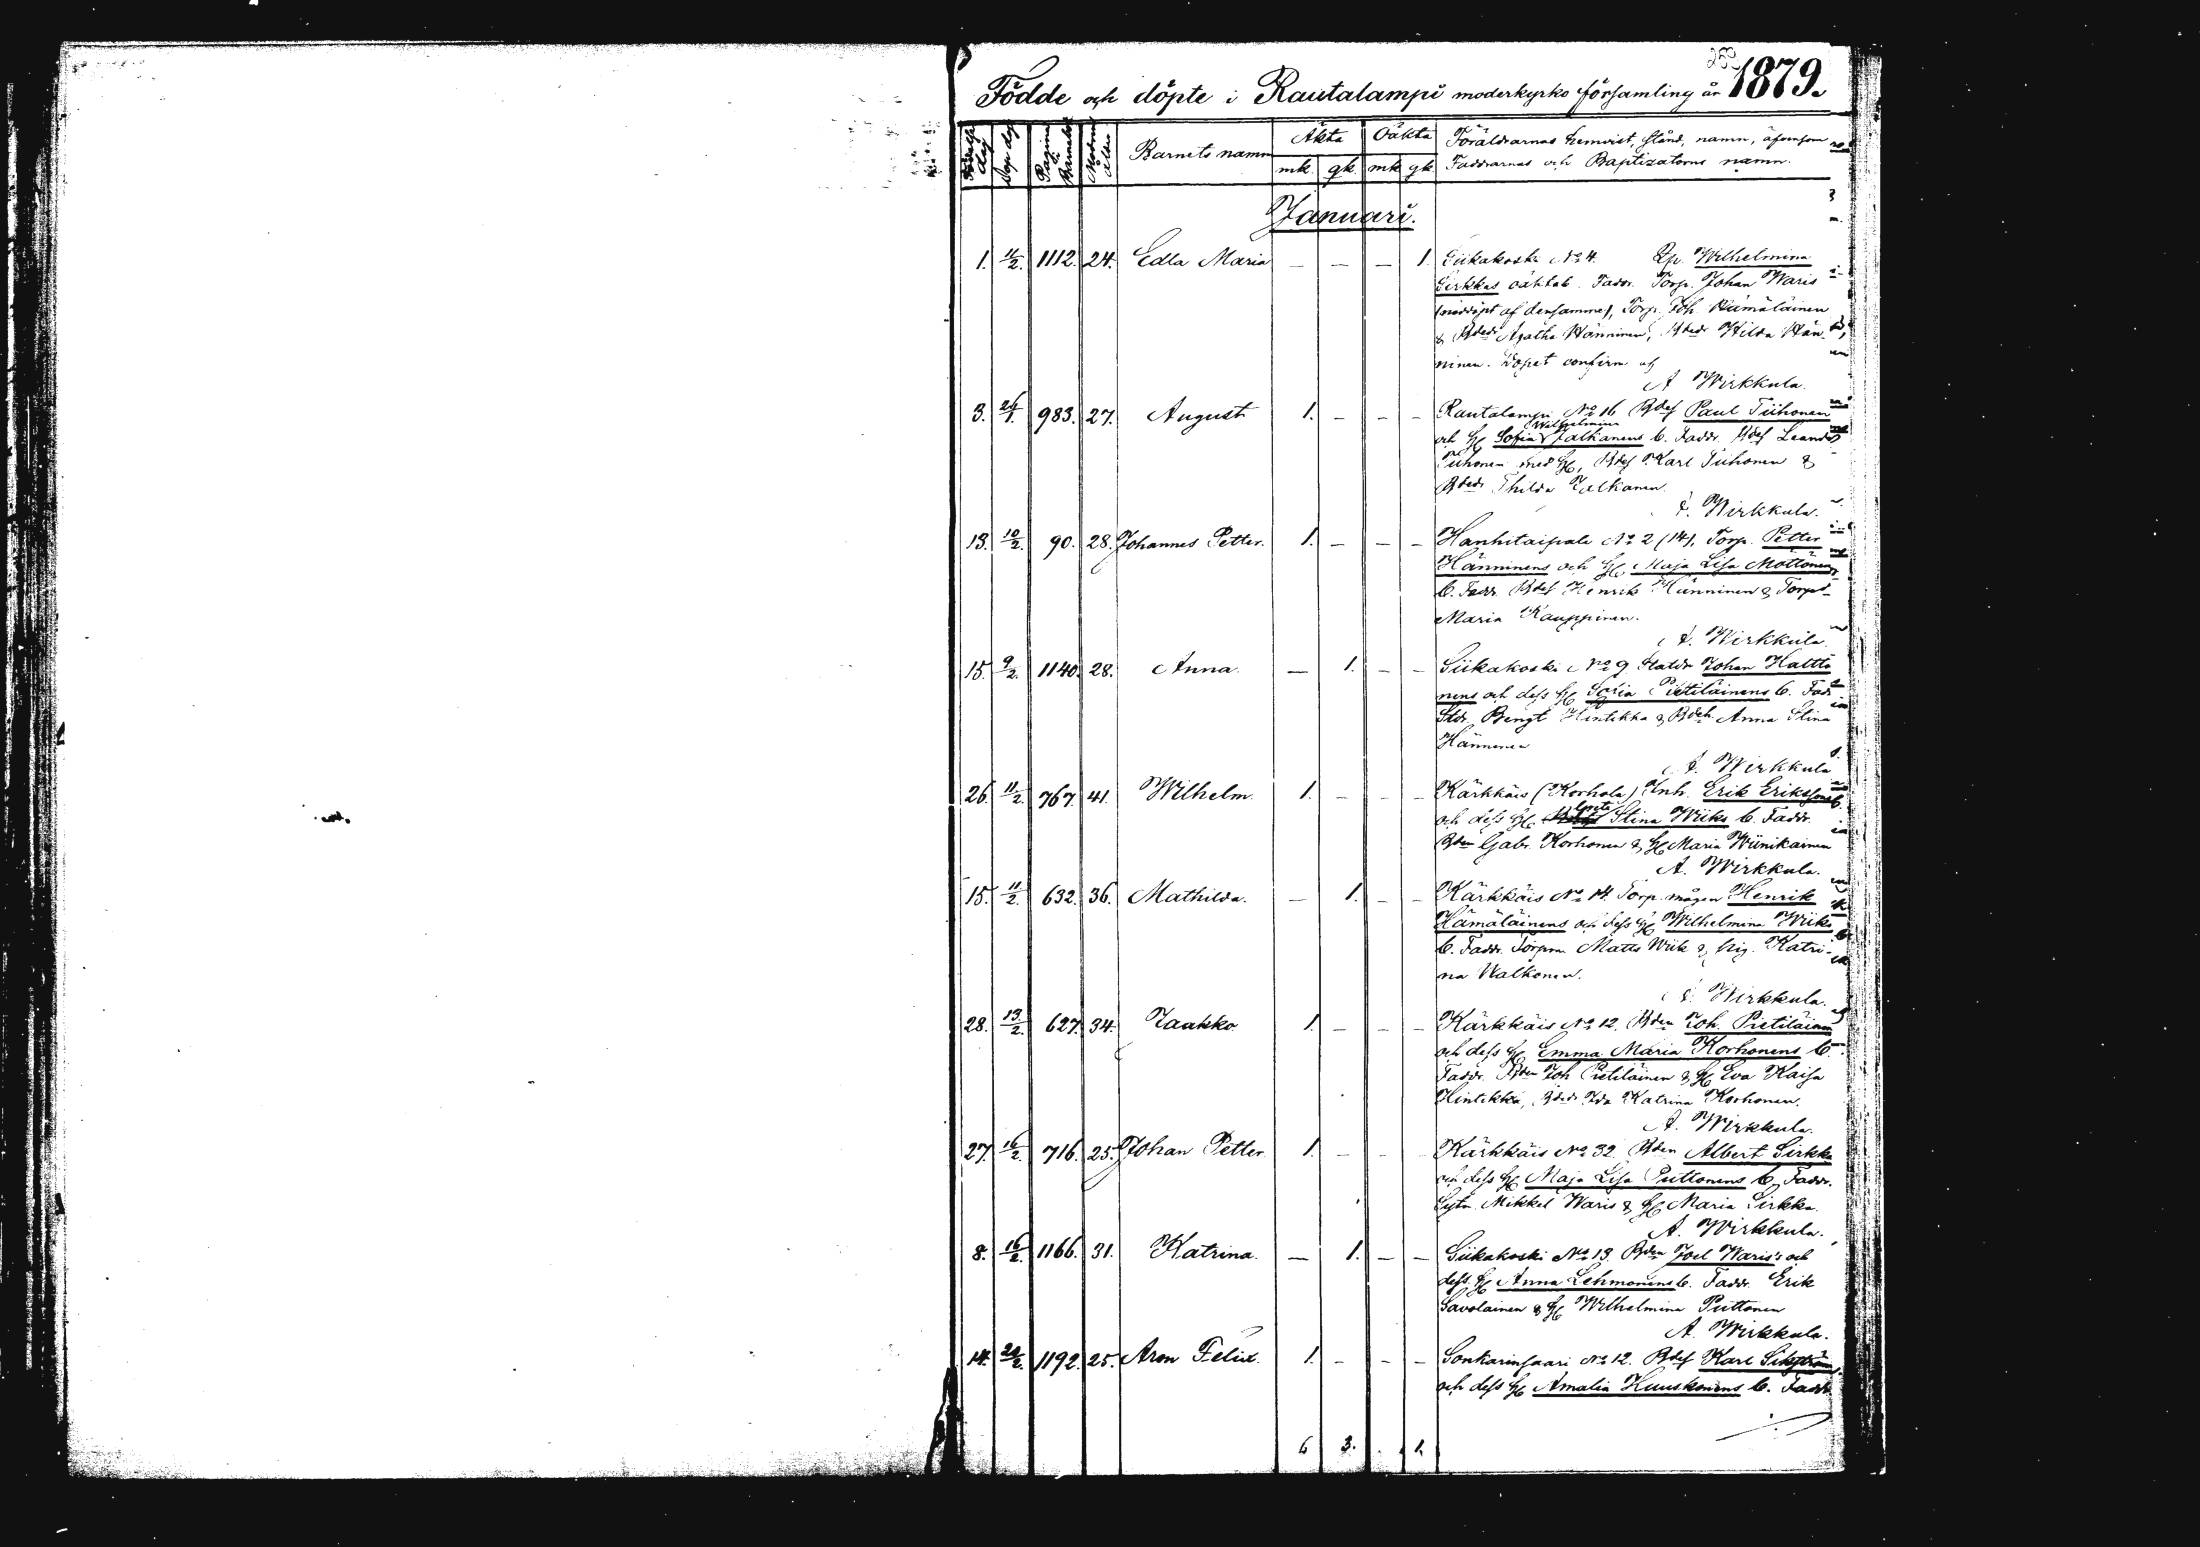 Födde och döpte i Rautalampi moderkyrko församling år 1879.
Födelse dag Dop dag Pagina i Barnabok Modrens ålder Barnets namn Äkta Oäkta Föräldrarnas hemvist, stånd, namn, äfvensom
mk. qk. mk qk Faddrarnas och Baptizatorns namn.
Januari.
1. 11/2. 1112. 24. Edla Maria — — — 1. Siikakoski No 4. Wilhelmina
Sirkkas oäkta b. Faddr. Torp. Johan Waris
(nöddöpt af densamme), Torp. Joh. Hämäläinen
& Bdedr Agatha Hänninen, Hilda Hän-
ninen. Dopet confirm af
A Wirkkula.
3. 26/1. 983. 27. August 1. — — — Rautalampi No 16 Bdes Paul Tiihonen
Wilhelmina
och H Sofia Jalkanens b. Faddr. Bdes Leander
Tiihonen med H, Bdes Karl Tiihonen &
Bdedr Thilda Jalkanen.
A. Wirkkula.
13. 10/2. 90. 28. Johannes Petter. 1. — — — Hanhitaipale No 2 (14), Torp. Petter
Hänninens och H Maja Lisa Möttönens
b. Faddr. Bdes Henrik Hänninen & Torpd
Maria Kauppinen.
A. Wirkkula
15. 9/2. 1140. 28. Anna. — 1. — — Siikakoski No 9 Johan Hattu
nens och dess H Sofia Pietiläinens b. Fadr
Bengt Hintikka & Anna Stina
Hänninen
A. Wirkkula
26. 11/2. 767. 41. Wilhelm. 1. — — — Kärkkäis (Korhola) Inh. Erik Erikssons
och dess H Greta Stina Wiiks b. Faddr.
Bden Gabr. Korhonen & H Maria Wiinikainen
A. Wirkkula.
15. 11/2. 632. 36. Mathilda. — 1. — — Kärkkäis No 14. Torp. mågen Henrik
Hämäläinens och dess H Wilhelmina Wiiks
b. Faddr. Torpn. Matts Wiik & Katri-
na Walkonen.
A. Wirkkula.
28. 13/2. 627. 34. Jaakko 1. — — — Kärkkäis No 12. Bden Joh. Pietiläinen
och dess H Emma Maria Korhonens b.
Faddr. Bden Joh Pietiläinen & H Eva Kaisa
Hintikka, Bdedr Ida Katrina Korhonen.
A. Wirkkula.
27. 16/2. 716. 25. Johan Petter 1. — — — Kärkkäis No 32. Bden Albert Sirkka
och dess H Maja Lisa Puttonens b, Faddr.
Mikkel Waris & H Maria Sirkka.
A. Wirkkula.
8. 16/2. 1166. 31. Katrina. — 1. — — Siikakoski No 13. Bden Joel Waris's och
dess H Anna Lehmonens b. Faddr. Erik
Savolainen & H Wilhelmina Puttonen
A. Wirkkula.
14. 20/2. 1192. 25. Aron Felix. 1. — — — Sonkarinsaari No 12. Bdes Karl
och dess H Amalia Huuskonens b. Faddr.
6 3. 1.